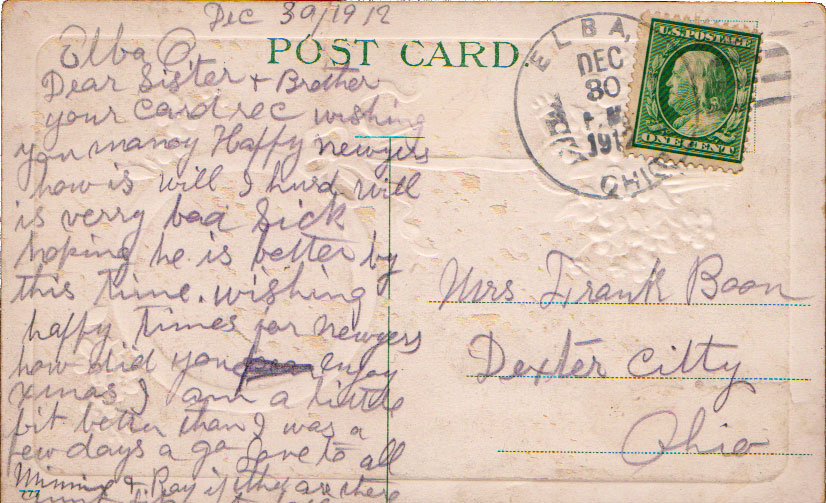 Dec 30/1912
Elba O.
POST CARD
Dear Sister + Brother
your card rec wishing
you manoy Happy newyers
how is will I hurd will
is verry bad sick
hoping he is better by
this time. wishing
happy times for newyers
how did you enjoy
xmas I am a little
bit better than I was a
few days a go Love to all
Minnie + Ray if they are there
ELBA,
DEC
30
191
OHIO
U.S. POSTAGE
ONE CENT
Mrs Frank Boon
Dexter Citty
Ohio